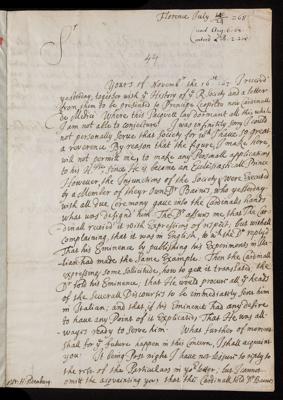 Florence July 14/24 1668
read Aug. 6: 68
Entred LB. 2. 224
Sr
44
Yours of Novemb. the 16th 67 I receivd
yesterday, together with ye History of ye R. Society and a letter
from them to be presented to Principe Leopoldo now Cardinall
de Medici Where this Paquett lay dormant all this while
I am not able to conjecture. I was infinitly sorry I could
not personally serve that Society for wch I have so great
a reverence By reason that the figure, I make here,
will not permit me, to make any Personall application
to his Hss. since He is became an Ecclesiasticall Prince
However the Injunctions of the Society were Executed
by a Member of theyr Own, Dr. Baines who yesterday
with all due Ceremony gave into the Cardinals hands
what was design'd him The Dr assures me, that The Car-
dinall receivd it with Expressions of respect, but withall
Complaining, that it was in English, to wch the Dr replyd
That his Eminence by publishing his Experiments in Ita-
lian had made the same Example. Then the Cardinall
expressing some sollicitude, how to get it translated, the
Dr told his Eminence, that He would procure all ye heads
of the Severall Discourses to be immediatly given him
in Italian; and that if his Eminence had any desire
to have any Point of it Explicated That He was all-
wayes ready to serve him. What further of moment
shall for ye future happen in this Concern, I shall acquaint
you. It being Post night I have not leisure to reply to
the rest of the Particulars in yor letter; but I cannot
omitt the acquainting you that the Cardinall told Dr Baines
Mr. H. Oldenburg.